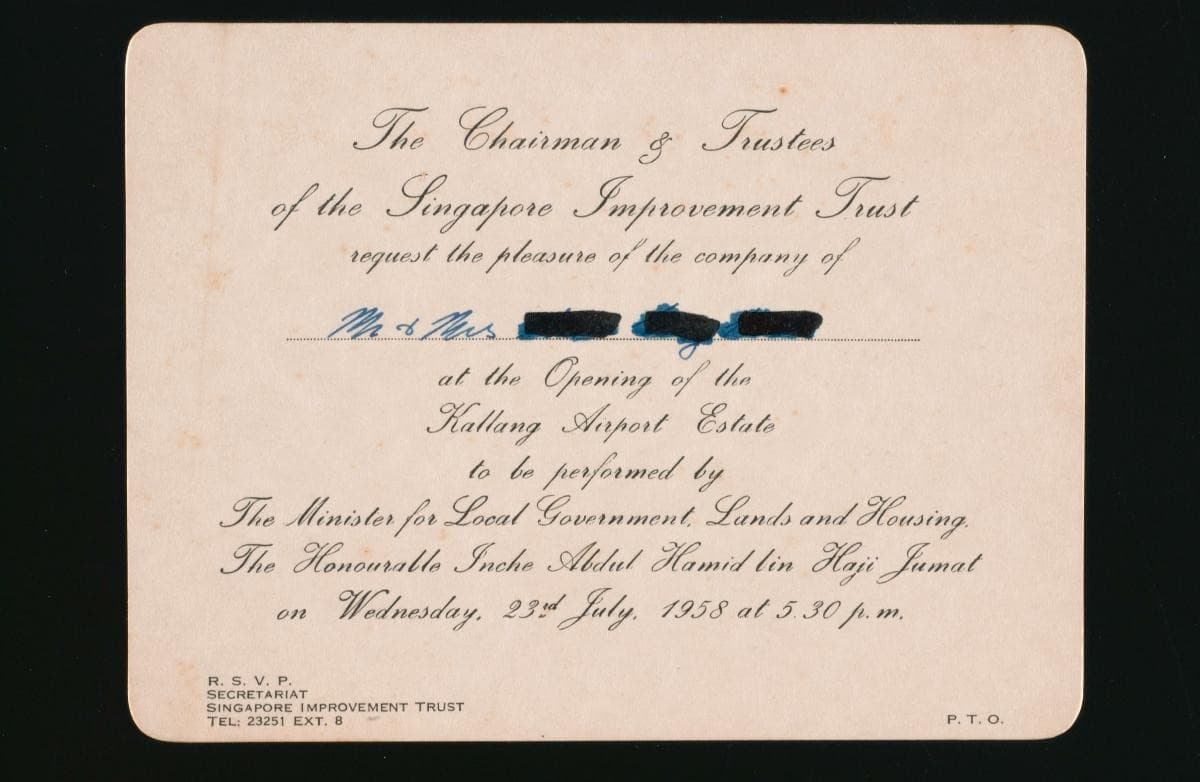 The Chairman & Trustees
of the Singapore Improvement Trust
request the pleasure of the company of
Mr & Mrs
at the Opening of the
Kallang Airport Estate
to be performed by
The Minister for Local Government, Lands and Housing,
The Honourable Inche Abdul Hamid bin Haji Jumat
on Wednesday, 23rd July, 1958 at 5.30 p.m.
R. S. V. P.
SECRETARIAT
SINGAPORE IMPROVEMENT TRUST
TEL: 23251 EXT. 8
P. T. O.